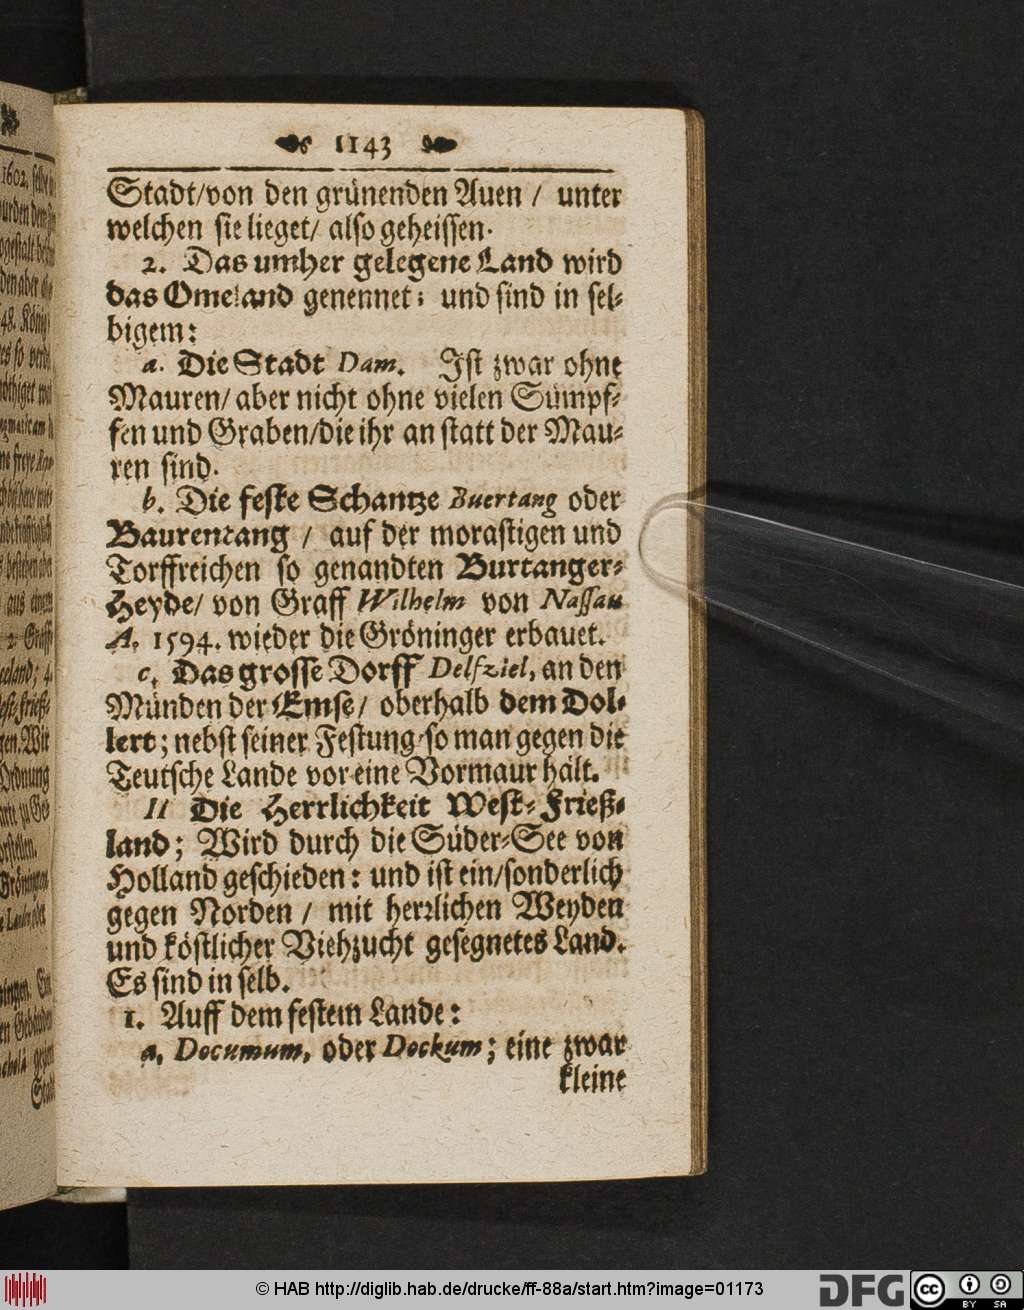 1143
Stadt/von den grünenden Auen / unter
welchen sie lieget/ also geheissen.
2. Das umher gelegene Land wird
das Omeland genennet; und sind in sel-
bigem:
a. Die Stadt Dam. Ist zwar ohne
Mauren/ aber nicht ohne vielen Sümpf-
fen und Graben/die ihr an statt der Mau-
ren sind.
b. Die feste Schantze Buertang oder
Baurentang / auf der morastigen und
Torffreichen so genandten Burtanger-
Heyde/ von Graff Wilhelm von Nassau
A. 1594. wieder die Gröninger erbauet.
c. Das grosse Dorff Delfziel, an den
Münden der Emse/ oberhalb dem Dol-
lert; nebst seiner Festung/so man gegen die
Teutsche Lande vor eine Vormaur hält.
II Die Herrlichkeit West-Frieß-
land; Wird durch die Süder-See von
Holland geschieden: und ist ein/sonderlich
gegen Norden / mit herrlichen Weyden
und köstlicher Viehzucht gesegnetes Land.
Es sind in selb.
1. Auff dem festem Lande:
a. Documum, oder Dockum; eine zwar
kleine
© HAB http://diglib.hab.de/drucke/ff-88a/start.htm?image=01173
DFG
CC BY SA